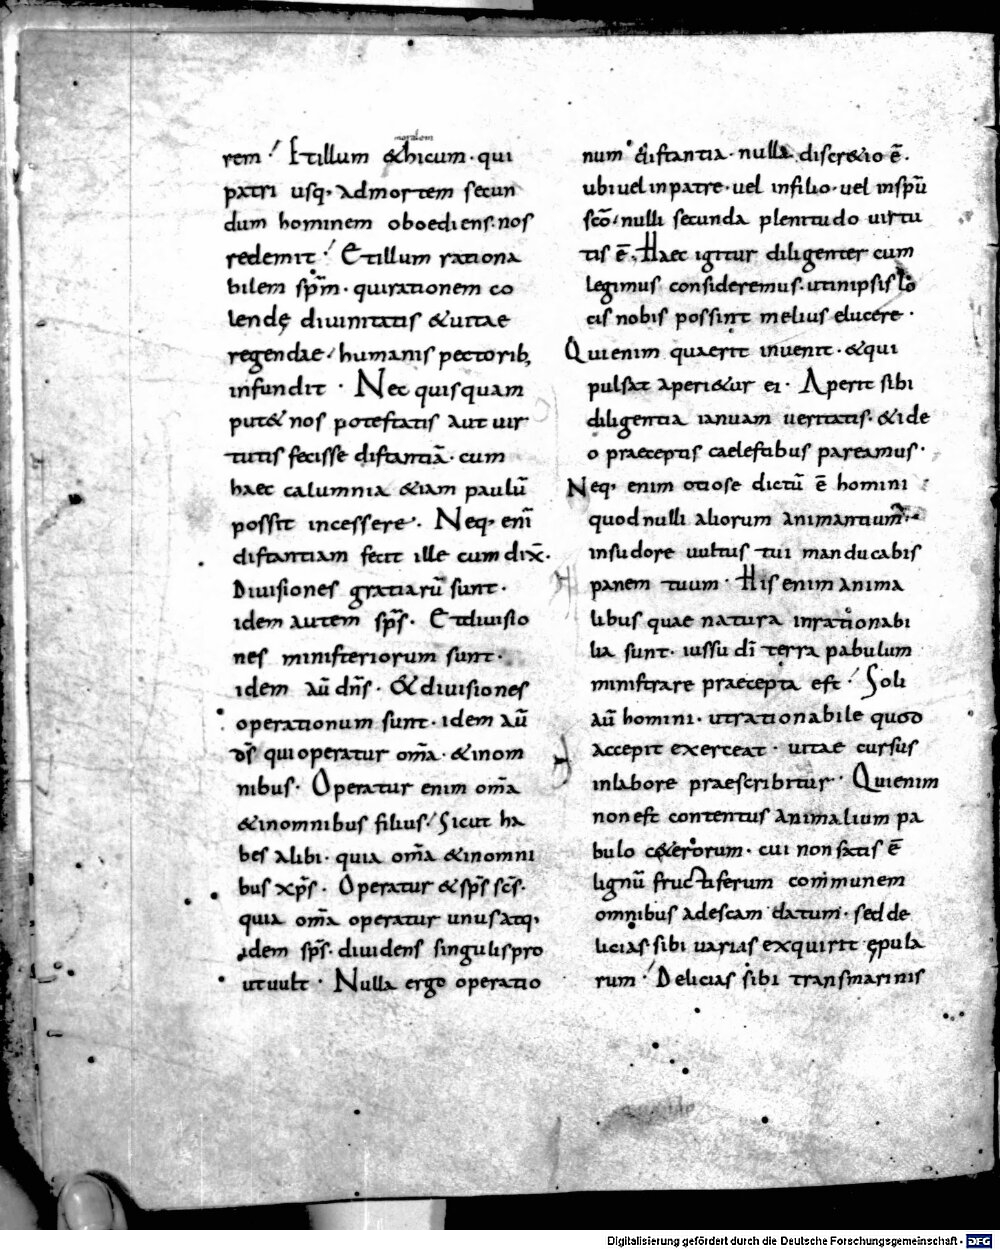 moralem
rem! Et illum &hicum· qui
patri usq; ad mortem secun
dum hominem oboediens· nos
redemit! Et illum rationa
bilem spm̄· qui rationem co
lendę diuinitatis & uitae
regendae! humanis pectorib;
infundit· Nec quisquam
put& nos potestatis aut uir
tutis fecisse distantiā· cum
haec calumnia &iam paulū
possit incessere·. Neq; enī
distantiam fecit ille cum dix̄·
Diuisiones gratiarū sunt·
idem autem sps̄· Et diuisio
nes ministeriorum sunt·
idem aū dn̄s· & diuisiones
operationum sunt· idem aū
ds̄ qui operatur om̄a· & in om
nibus· Operatur enim om̄a
& in omnibus filius! Sicut ha
bes alibi· quia om̄a & in omni
bus xp̄s· Operatur & sp̄s sc̄s·
quia om̄a operatur unus atq;
idem sp̄s· diuidens singulis pro
ut uult· Nulla ergo operatio
num distantia· nulla discr&io ē·
ubi uel in patre· uel in filio· uel in spū
scō! nulli secunda plenitudo uirtu
tis ē·, Haec igitur diligenter cum
legimus consideremus· ut in ipsis lo
cis nobis possint melius elucere·
Qui enim quaerit inuenit· & qui
pulsat aperi&ur ei· Aperit sibi
diligentia ianuam ueritatis· & ide
o praeceptis caelestibus pareamus·
Neq; enim otiose dictū ē homini
quod nulli aliorum animantium·
in sudore uultus tui manducabis
panem tuum· His enim anima
libus quae natura inrationabi
lia sunt· iussu dī terra pabulum
ministrare praecepta est! Soli
aū homini· ut rationabile quod
accepit exerceat· uitae cursus
in labore praescribitur· Qui enim
non est contentus animalium pa
bulo c&erorum· cui non satis ē
lignū fructiferum communem
omnibus ad escam datum· sed de
licias sibi uarias exquirit ępula
rum! Delicias sibi transmarinis
Digitalisierung gefördert durch die Deutsche Forschungsgemeinschaft - DFG